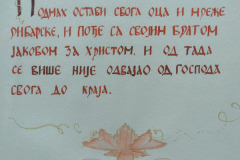 Подмах остави свога оца и мреже
рибарске, и пође са својим братом
Јаковом за Христом, и од тада
се више није одвајао од Господа
свога до краја.